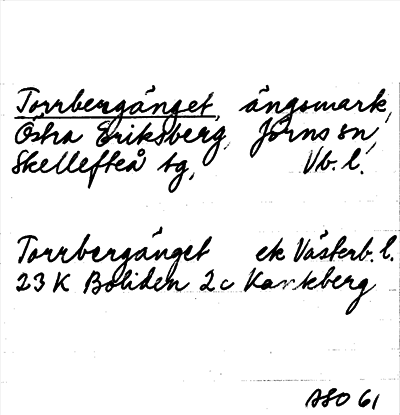 Torrbergänget, ängsmark,
Östra Eriksberg, Jörns sn,
Skellefteå tg, Vb. l.
Torrbergänget ek Västerb. l.
23 K Boliden 2c Kankberg
ASO 61